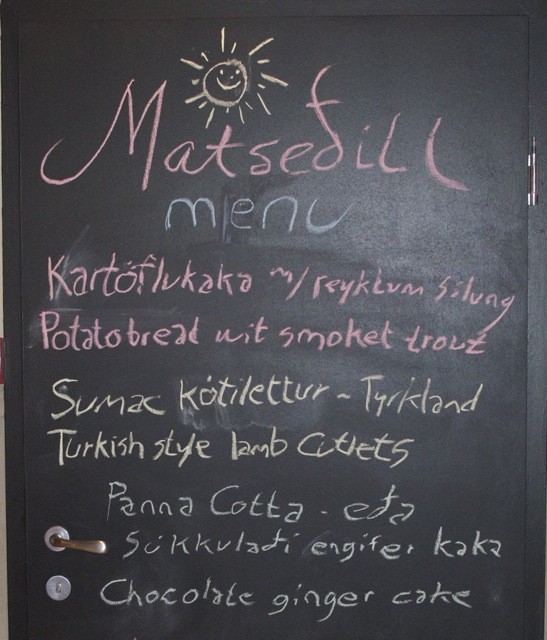 Matseðill
menu
Kartöflukaka m/reyktum silung
Potatobread wit smoket trout
Sumac kótilettur ~ Tyrkland
Turkish style lamb cutlets
Panna Cotta - eða
Súkkulaði engifer kaka
Chocolate ginger cake